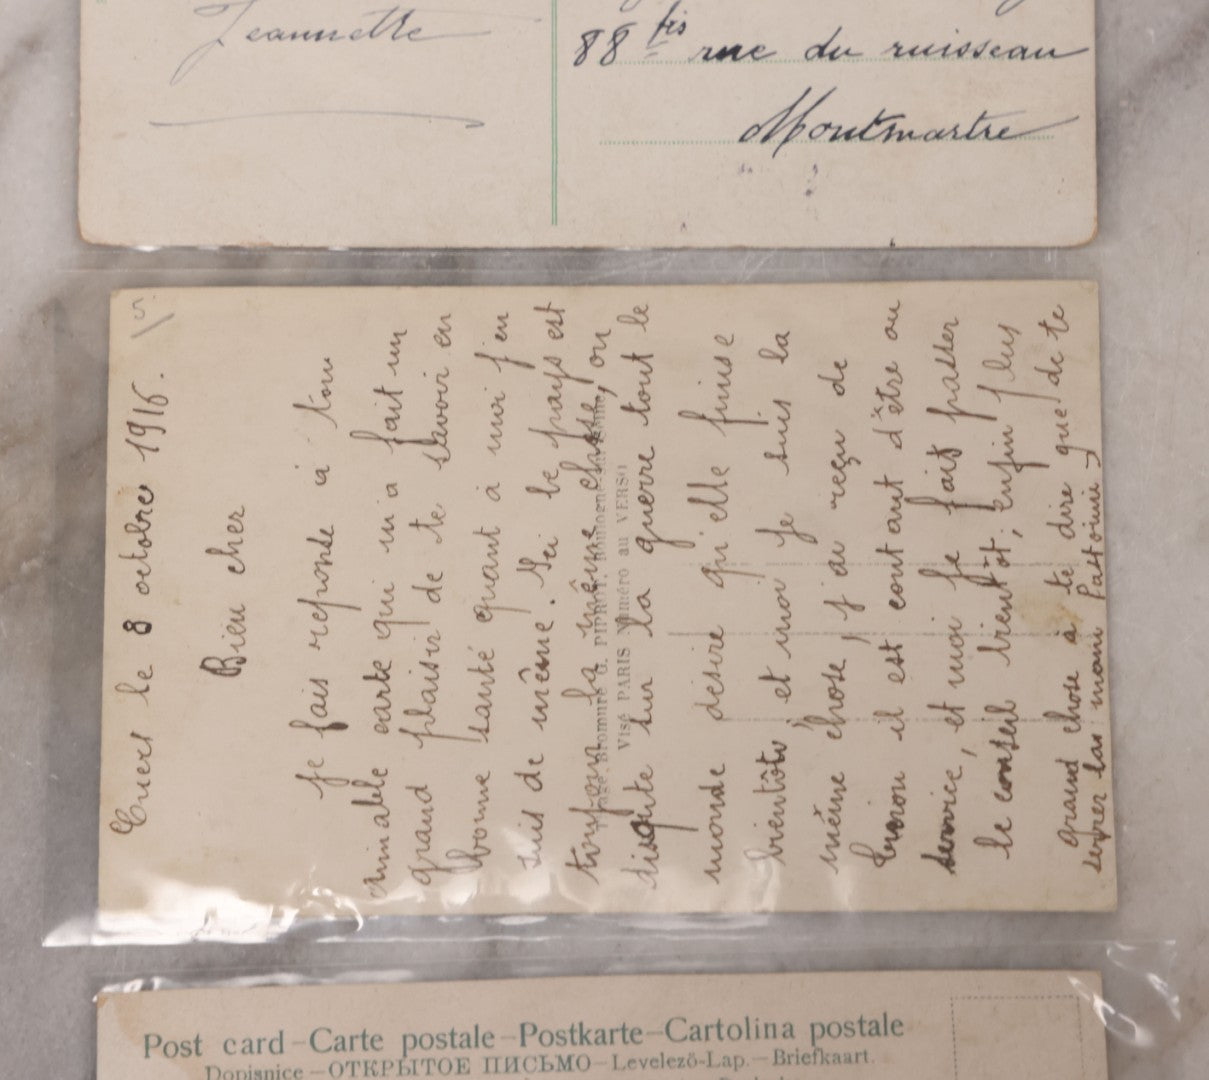 Jeannette
88 bis rue du ruisseau
Montmartre
Cuers le 8 octobre 1916.
Bien cher
je fais reponse à ton
aimable carte qui m'a fait un
grand plaisir de te savoir en
bonne santé quant à moi j'en
suis de même. Ici le pays est
toujours la même chose, on
dispute sur la guerre tout le
monde désire qu'elle finise
bientôt, et moi je suis la
même chose, j'ai reçu de
il est contant d'être au
service, et moi je fais passer
le conseil bientôt; enfin plus
grand chose à te dire que de te
serrer la main
G. PIPROT, Boulogne
Visé PARIS Numéro au VERSO
Post card – Carte postale – Postkarte – Cartolina postale
Dopisnice – ОТКРЫТОЕ ПИСЬМО – Levelező-Lap. – Briefkaart.